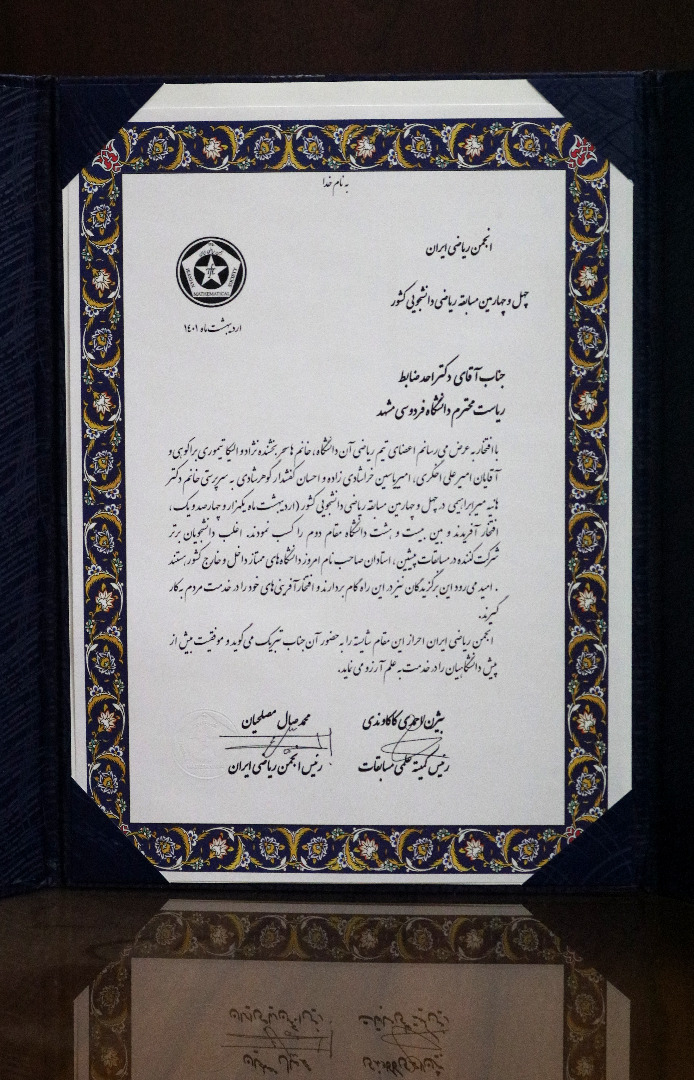 به نام خدا
انجمن ریاضی ایران
IRANIAN MATHEMATICAL SOCIETY
چهل و چهارمین مسابقه ریاضی دانشجویی کشور
اردیبهشت ماه ۱۴۰۱
جناب آقای دکتر احد ضابط
ریاست محترم دانشگاه فردوسی مشهد
با افتخار به عرض می‌رسانم اعضای تیم ریاضی آن دانشگاه، خانم‌ها سحر بخشنده نژاد و الیکا تیموری براکوهی و
آقایان امیرعلی لشکری، امیریاسین خراشادی زاده و احسان کفشدار گوهرشادی به سرپرستی خانم دکتر
هانیه میرابراهیمی در چهل و چهارمین مسابقه ریاضی دانشجویی کشور (اردیبهشت ماه یکهزار و چهارصد و یک،
افتخار آفریدند و بین بیست و هشت دانشگاه مقام دوم را کسب نمودند. اغلب دانشجویان برتر
شرکت کننده در مسابقات پیشین، استادان صاحب نام امروز دانشگاه‌های ممتاز داخل و خارج کشور هستند
. امید می‌رود این برگزیدگان نیز در این راه گام بردارند و افتخارآفرینی‌های خود را در خدمت مردم به کار
گیرند.
انجمن ریاضی ایران احراز این مقام شایسته را به حضور آن جناب تبریک می‌گوید و موفقیت بیش از
پیش دانشگاهیان را در خدمت به علم آرزو می‌نماید.
بیژن احمدی کاکاوندی
رئیس کمیته علمی مسابقات
محمد صال مصلحیان
رئیس انجمن ریاضی ایران